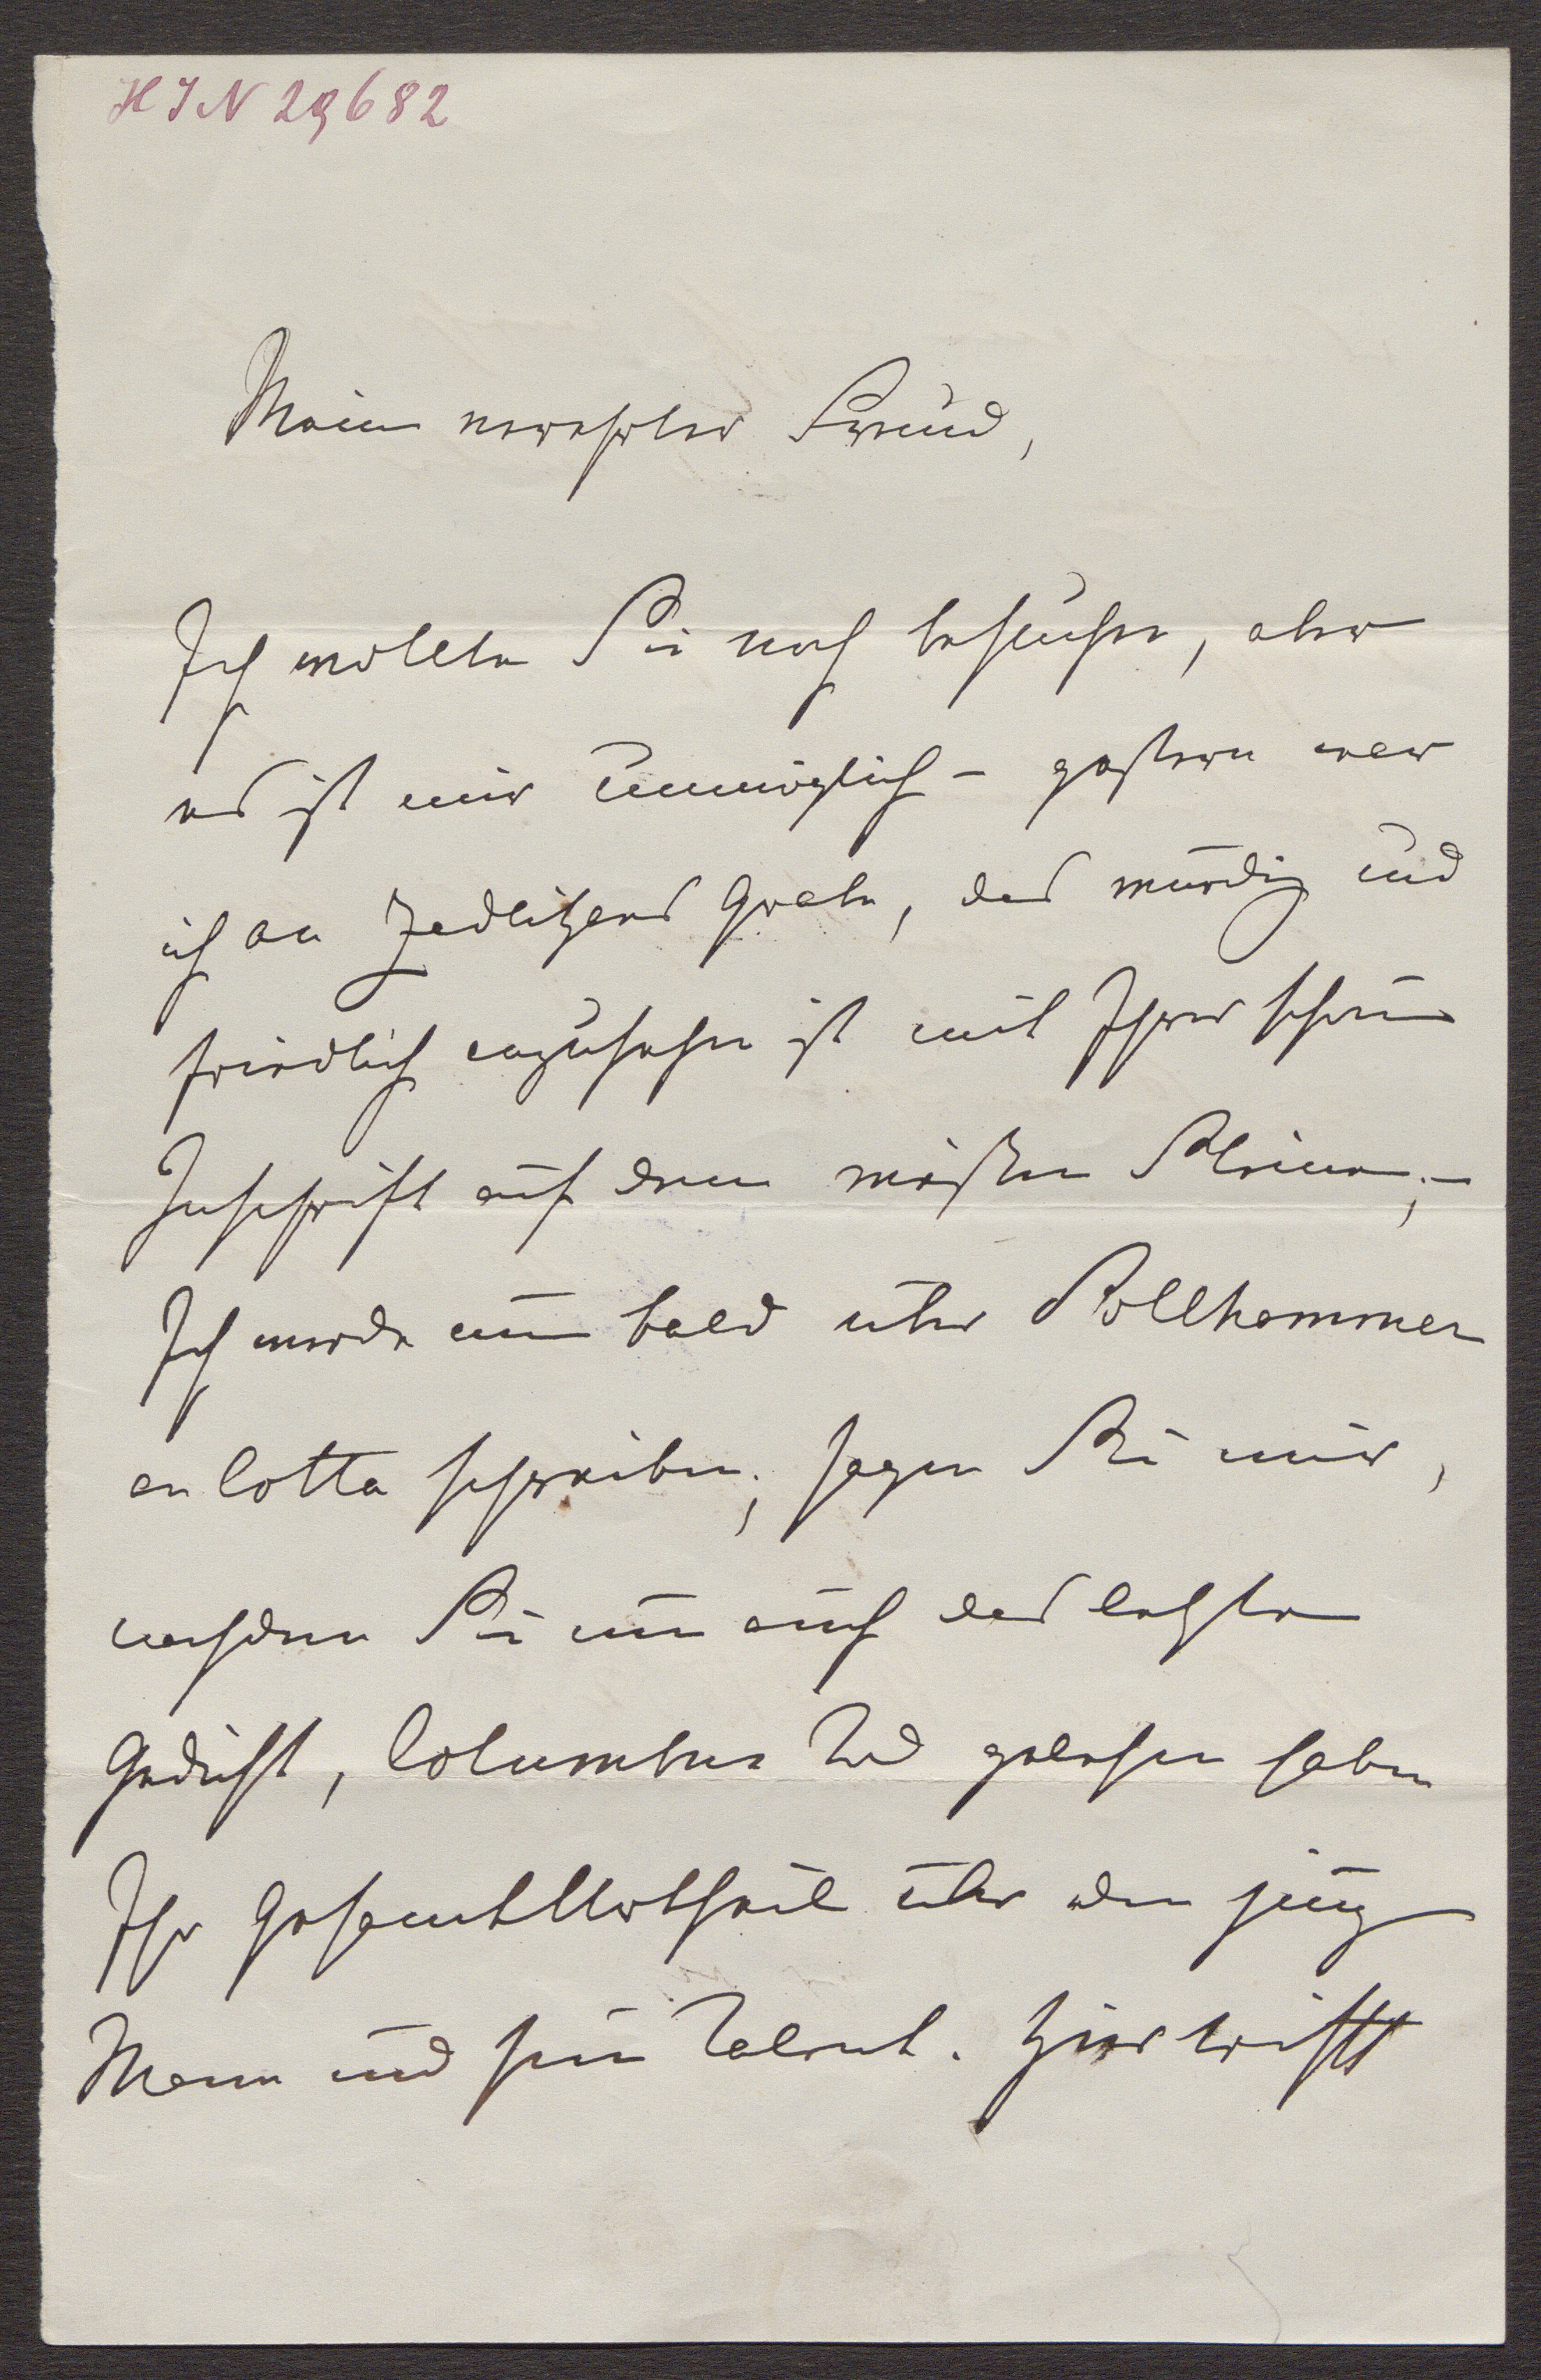 HIN 29682
Mein verehrter Freund,
Ich wollte Sie noch besuchen, aber
es ist mir unmöglich – gestern war
ich an Zedlitzens Grabe, das würdig und
friedlich anzusehen ist mit Ihrer schönen
Inschrift auf dem weißen Steine; –
Ich werde nun bald über Pollhammer
an Cotta schreiben; sagen Sie mir,
nachdem Sie nun auch das letzte
Gedicht, Columbus Tod gelesen haben
Ihr Gesammturtheil über den jungen
Mann und sein Talent. Hier trifft